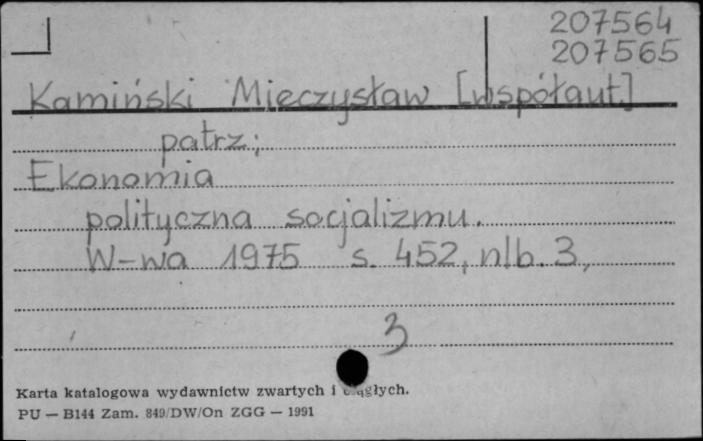 207564
207565
Kamiński Mieczysław [współaut.]
patrz;
Ekonomia
polityczna socjalizmu.
W-wa 1975 s. 452, nlb. 3,
3
Karta katalogowa wydawnictw zwartych i ciągłych.
PU — B144 Zam. 849/DW/On ZGG — 1991